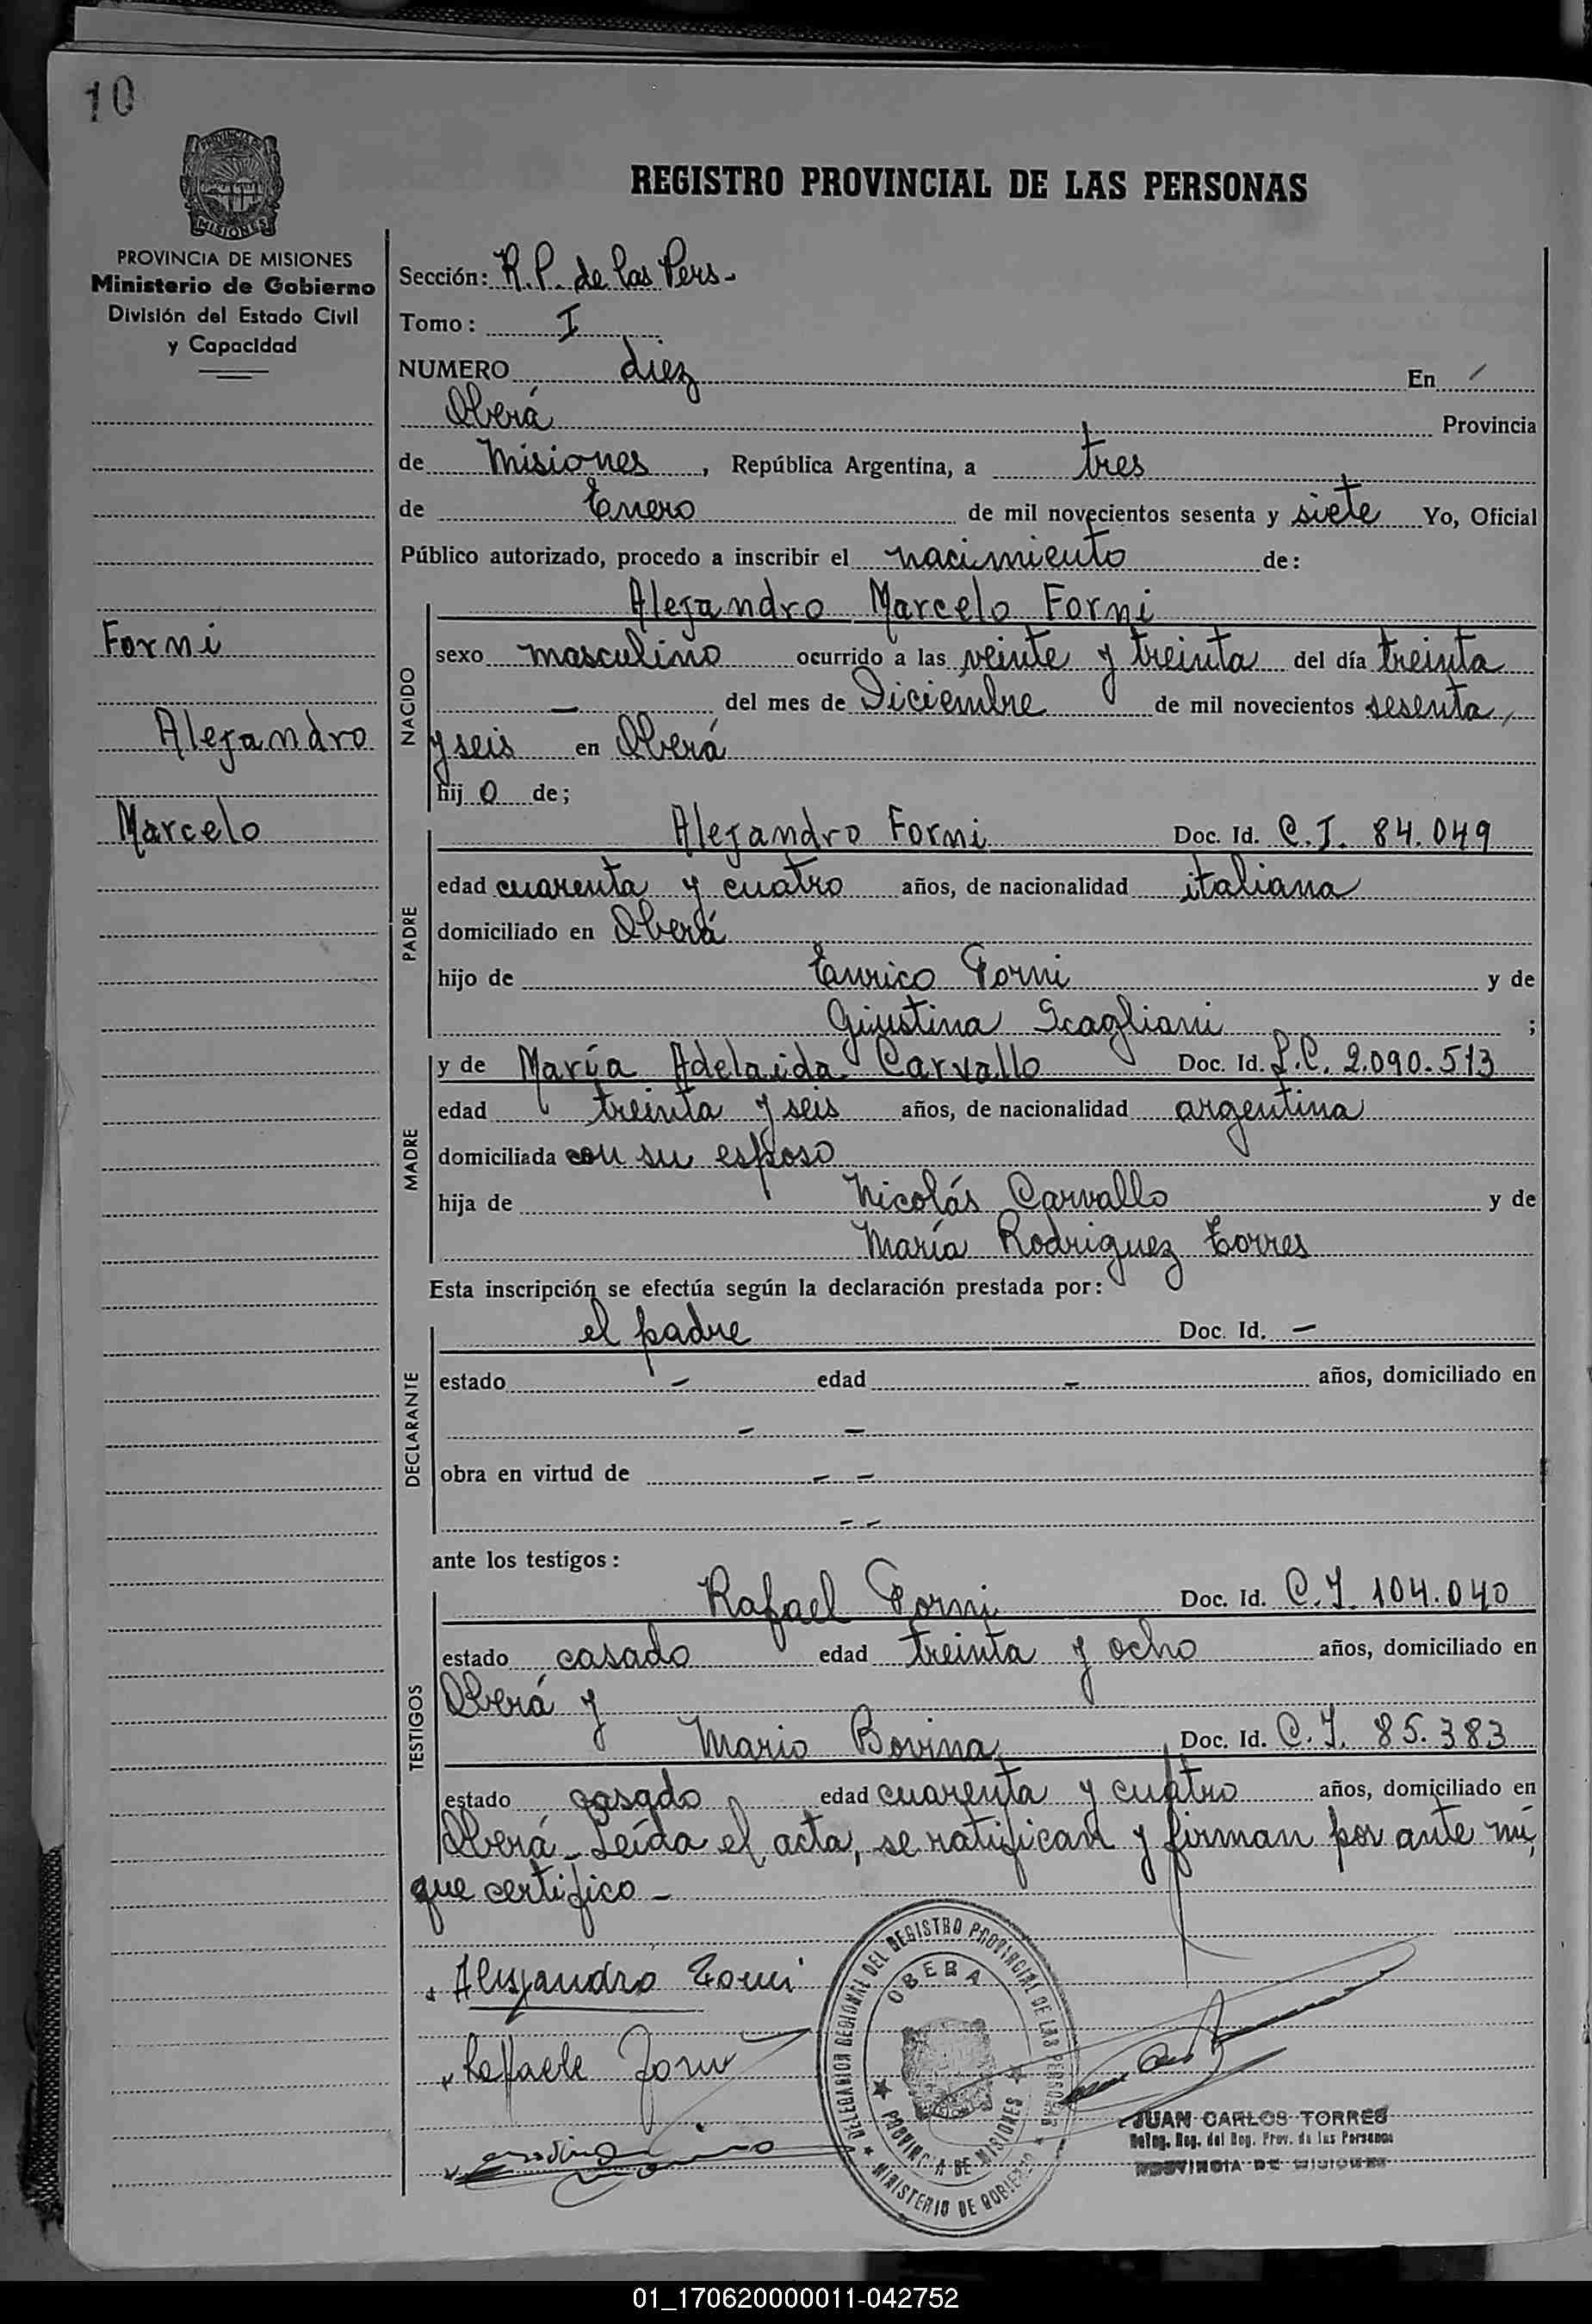 10
REGISTRO PROVINCIAL DE LAS PERSONAS
PROVINCIA DE MISIONES
Ministerio de Gobierno
División del Estado Civil
y Capacidad
Forni
Alejandro
Marcelo
Sección: R.P. de las Pers-
Tomo: I
NUMERO diez En
Oberá Provincia
de Misiones, República Argentina, a tres
de Enero de mil novecientos sesenta y siete Yo, Oficial
Público autorizado, procedo a inscribir el nacimiento de:
NACIDO
Alejandro Marcelo Forni
sexo masculino ocurrido a las veinte y treinta del día treinta
- del mes de Diciembre de mil novecientos sesenta
y seis en Oberá
hijo de;
PADRE
Alejandro Forni Doc. Id. C.I. 84.049
edad cuarenta y cuatro años, de nacionalidad italiana
domiciliado en Oberá
hijo de Enrico Forni y de
Giustina Scagliani ;
MADRE
y de María Adelaida Carvallo Doc. Id. L.C. 2.090.513
edad treinta y seis años, de nacionalidad argentina
domiciliada con su esposo
hija de Nicolás Carvallo y de
María Rodriguez Torres
Esta inscripción se efectúa según la declaración prestada por:
DECLARANTE
el padre Doc. Id. -
estado - edad - años, domiciliado en
- -
obra en virtud de - -
- -
ante los testigos:
TESTIGOS
Rafael Forni Doc. Id. C.I. 104.040
estado casado edad treinta y ocho años, domiciliado en
Oberá y
Mario Bovina Doc. Id. C.I. 85.383
estado casado edad cuarenta y cuatro años, domiciliado en
Oberá - Leída el acta, se ratifican y firman por ante mí,
que certifico -
Alejandro Forni
Raffaele Forni
DELEGACION REGIONAL DEL REGISTRO PROVINCIAL DE LAS PERSONAS
OBERA
PROVINCIA DE MISIONES
MINISTERIO DE GOBIERNO
JUAN CARLOS TORRES
Deleg. Reg. del Reg. Prov. de las Personas
PROVINCIA DE MISIONES
01_170620000011-042752